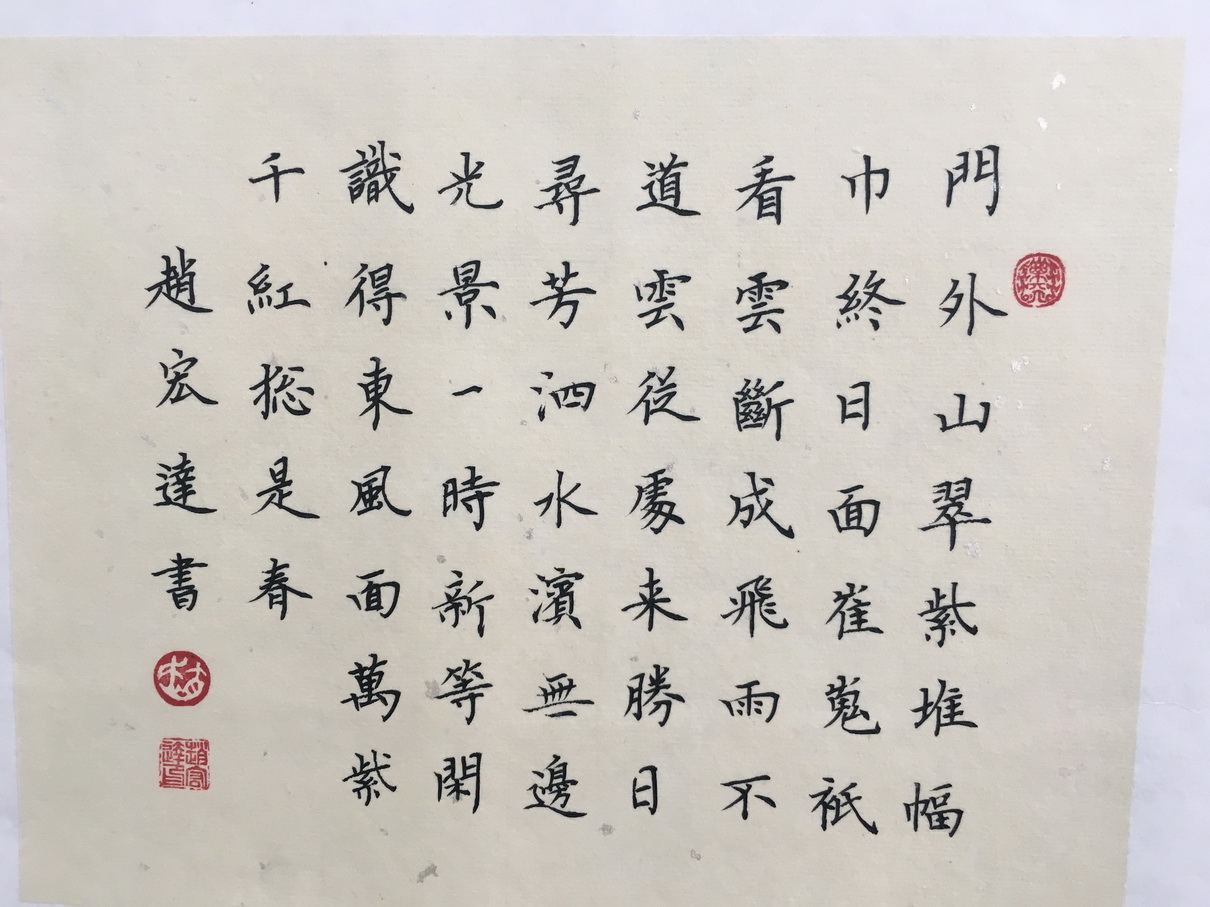 門外山翠紫堆幅
巾終日面崔嵬
看雲斷成飛雨不
道雲從處来勝日
尋芳泗水濱無邊
光景一時新等閑
識得東風面萬紫
千紅捴是春
趙宏達書